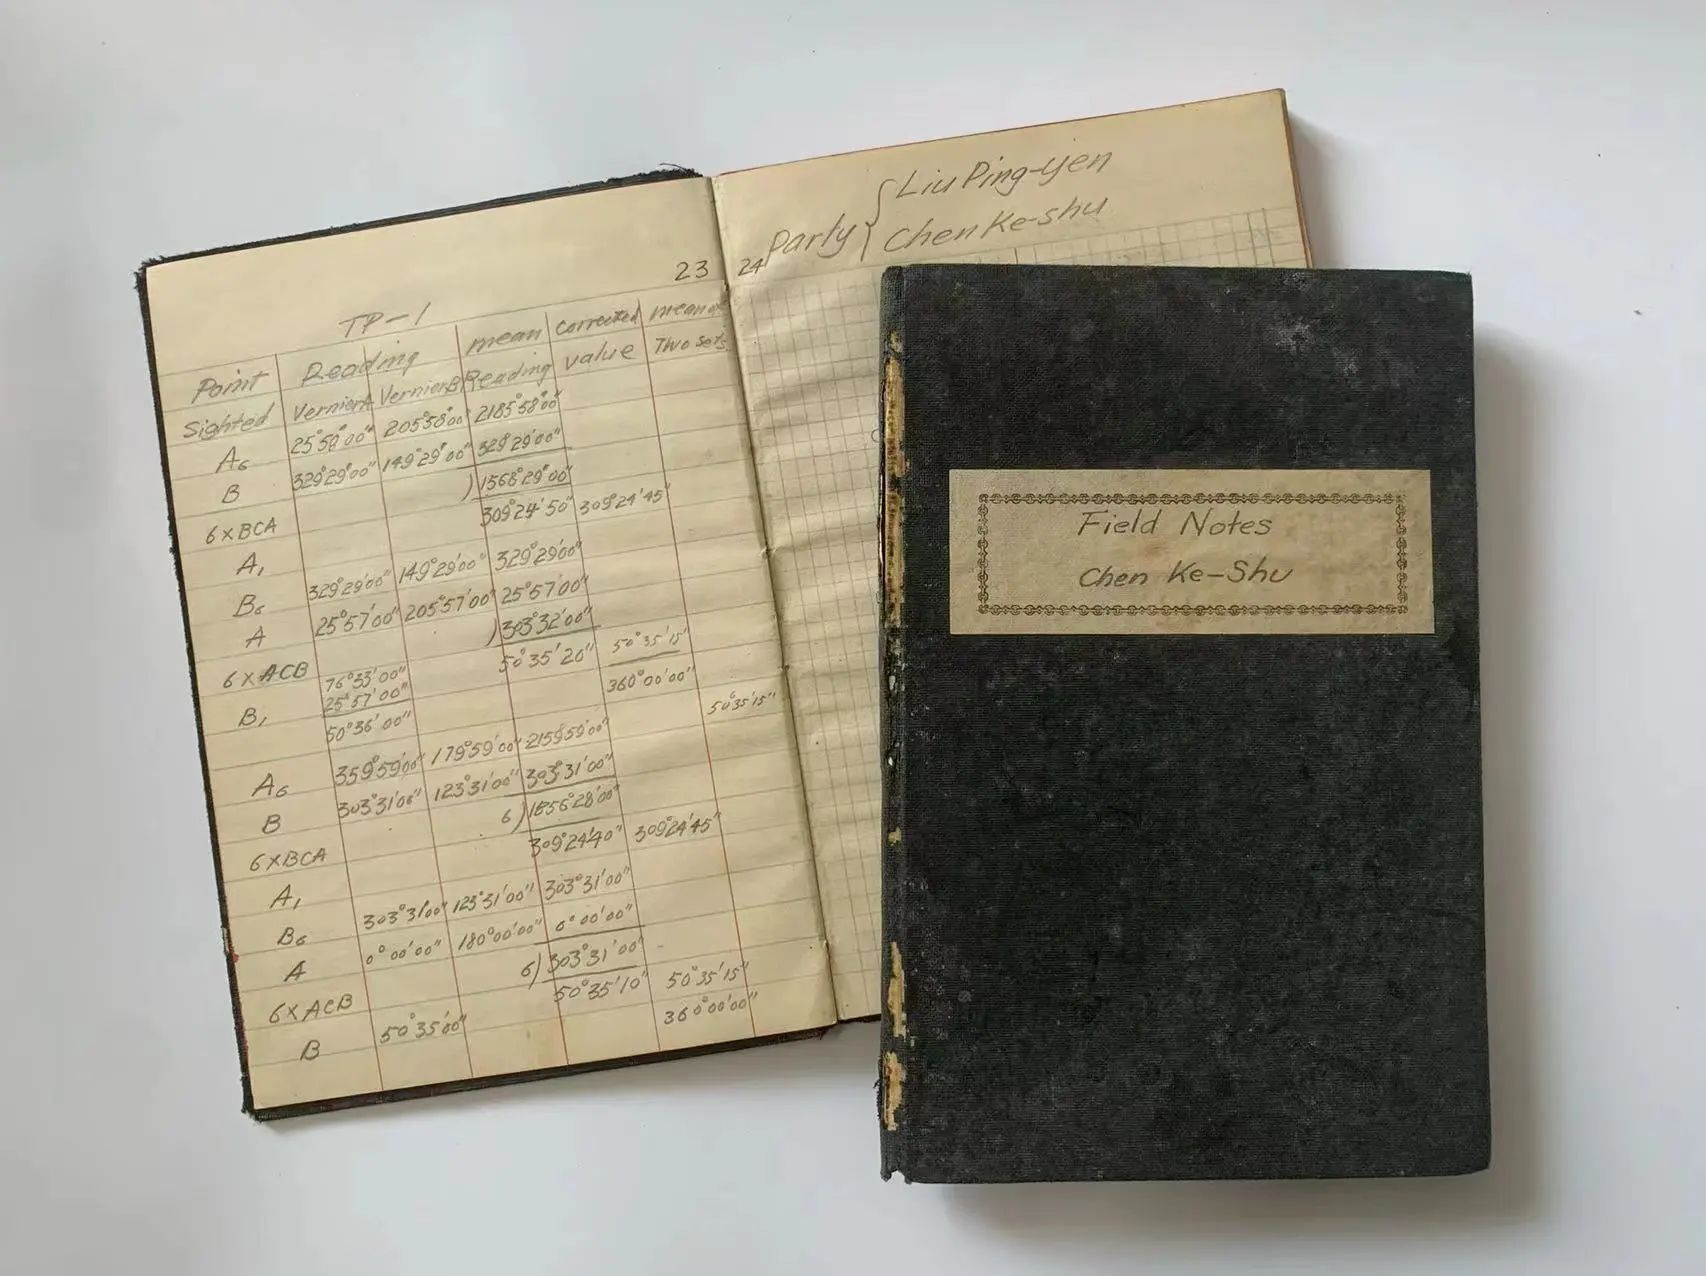 23
TP-1
Point Reading mean corrected mean of
Sighted Vernier A Vernier B Reading value Two sets
A₆ 25°58'00" 205°58'00" 2185°58'00"
B 329°29'00" 149°29'00" 329°29'00"
6×BCA )1568°29'00"
309°24'50" 309°24'45"
A₁
B₆ 329°29'00" 149°29'00" 329°29'00"
A 25°57'00" 205°57'00" 25°57'00"
6×ACB )303°32'00"
76°33'00" 50°35'20" 50°35'15"
B₁ 25°57'00" 360°00'00"
50°36'00" 50°35'15"
A₆ 359°59'00" 179°59'00" 2159°59'00"
B 303°31'00" 123°31'00" 303°31'00"
6×BCA 6)1856°28'00"
309°24'40" 309°24'45"
A₁
B₆ 303°31'00" 123°31'00" 303°31'00"
A 0°00'00" 180°00'00" 0°00'00"
6×ACB 6)303°31'00"
B 50°35'00" 50°35'10" 50°35'15"
360°00'00"
24
Party { Liu Ping-yen
Chen Ke-shu
Field Notes
Chen Ke-Shu